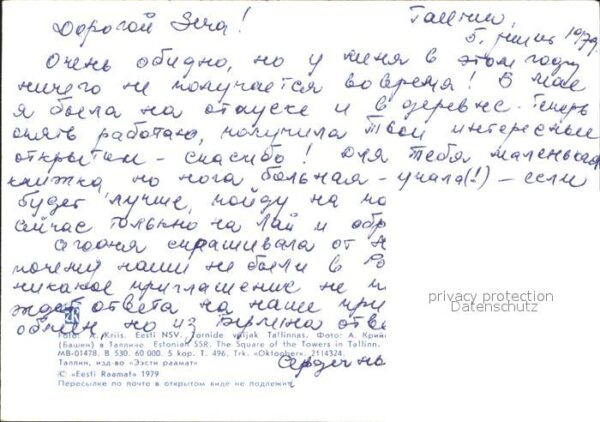 Таллин,
Дорогой Эгча!
5. июня 1979.
Очень обидно, но у меня в этом году
ничего не получается вовремя! В мае
я была на отпуске и в деревне. Теперь
опять работаю, получила твои интересные
открытки - спасибо! Для тебя маленькая
книжка, но нога больная - упала(!) - если
будет лучше, пойду на по
сейчас только на Лай и обр
спрашивала от
почему наши не были в Ро
никакое приглашение не п
ждёт ответа на наше при
обмен, но из Берлина отве
Сердечны
privacy protection
Datenschutz
Foto: A. Kriis. Eesti NSV. Tornide väljak Tallinnas. Фото: А. Крий
(Башни) в Таллине Estonian SSR. The Square of the Towers in Tallinn.
MB-01478. B 530. 60 000. 5 kop. T. 496. Trk. «Oktoober». 2114324.
Таллин, изд-во «Ээсти раамат»
© «Eesti Raamat» 1979
Пересылке по почте в открытом виде не подлежит